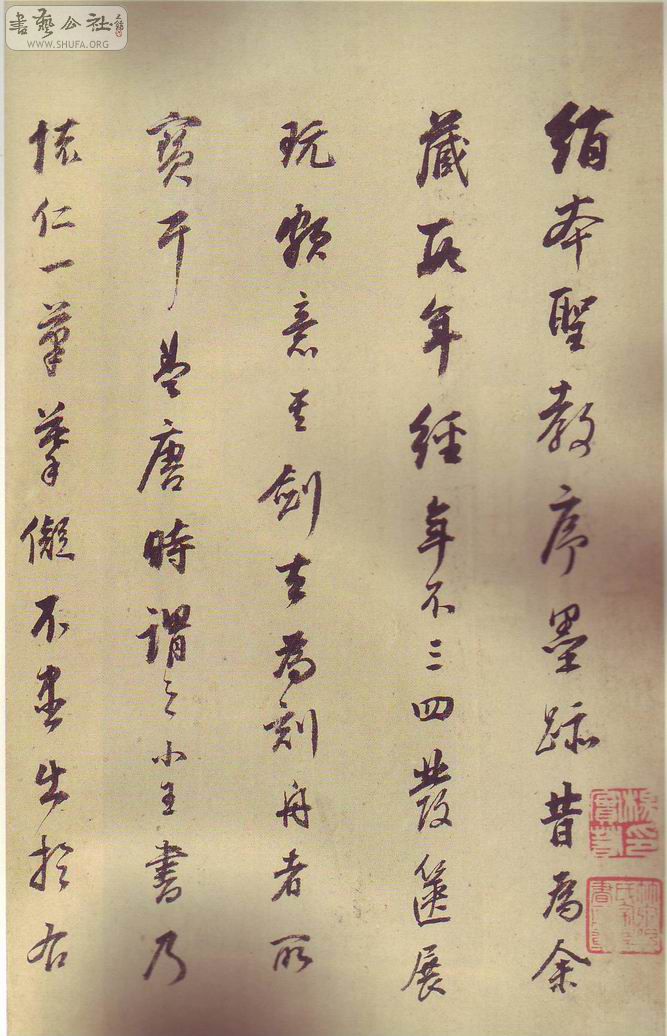 書藝公社
WWW.SHUFA.ORG
絹本聖教序墨跡昔為余
藏數年經年不三四發篋展
玩頗意其劍去為刻舟者所
寶耳蓋唐時謂之小王書乃
懷仁一筆摹儗不盡出於右